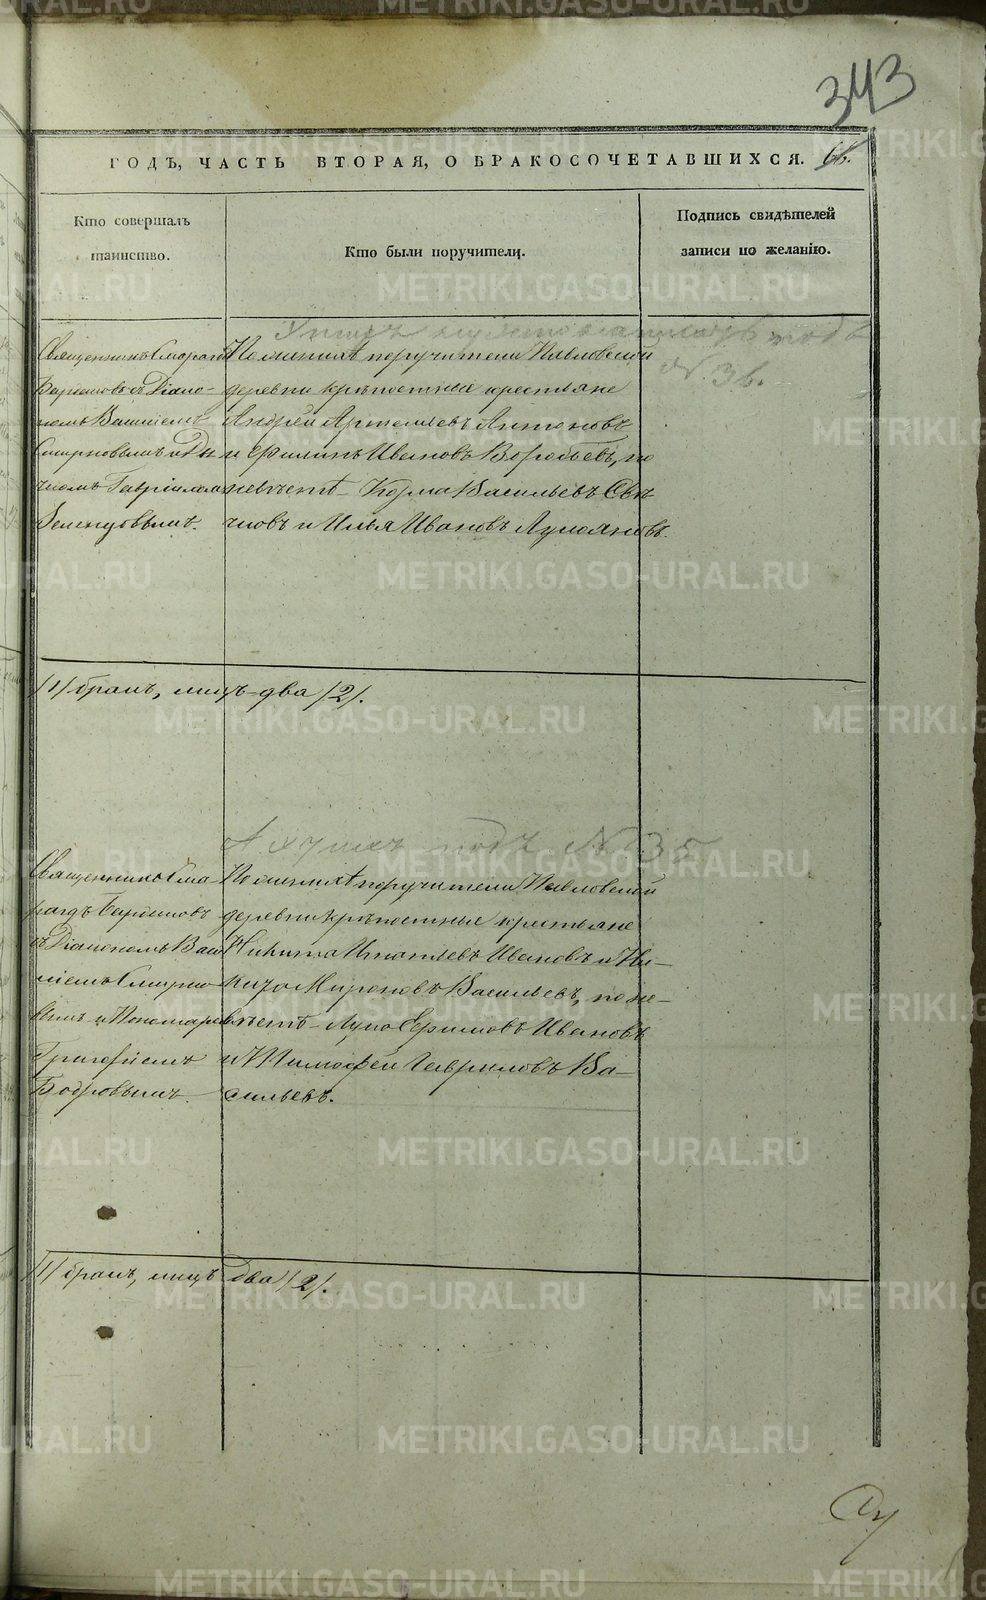 343
ГОДЪ, ЧАСТЬ ВТОРАЯ, О БРАКОСОЧЕТАВШИХСЯ. 66.
Кто совершалъ
таинство.
Кто были поручители.
Подпись свидѣтелей
записи по желанію.
N. 36.
Священникъ Смарагдъ
съ Діако-
номъ Василіемъ
Смирновымъ и Дья
чкомъ Гавріиломъ
По женихѣ поручители Павловской
деревни крѣпостные крестьяне
Андрей Артемьевъ Антоновъ
и Филипъ Ивановъ Воробьевъ, по
невѣстѣ - Козма Васильевъ
и Илья Ивановъ Лукояновъ.
/1/ бракъ, лицъ два /2/.
подъ N 35
Священникъ Сма-
рагдъ
съ Діакономъ Васи
ліемъ Смирно-
вымъ и Пономаремъ
Григоріемъ
Бобровымъ.
По женихѣ поручители Павловской
деревни крѣпостные крестьяне
Никита Игнатьевъ Ивановъ и
Мироновъ Васильевъ, по не-
вѣстѣ - Лука Ефимовъ Ивановъ
и Тимофей Гавриловъ Ва-
сильевъ.
/1/ бракъ, лицъ два /2/.
METRIKI.GASO-URAL.RU